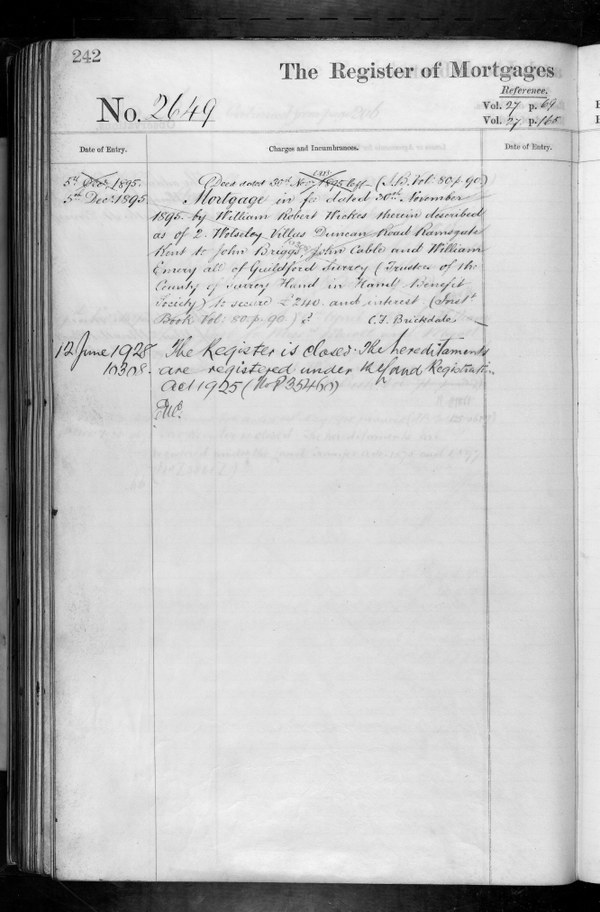 242
The Register of Mortgages
Reference.
No. 2649
Vol. 27 p. 69
Vol. 27 p. 165
Date of Entry.
Charges and Incumbrances.
Date of Entry.
5th Dec. 1895.
Deed dated 30th Nov. 1895 left (I.B. Vol: 80 p. 90.)
5th Dec. 1895.
Mortgage in fee dated 30th November
1895. by William Robert Wickes therein described
as of 2. Wolseley Villas Duncan Road Ramsgate
Kent to John Briggs, John Cable and William
Emery all of Guildford Surrey (Trustees of the
County of Surrey Hand in Hand Benefit
Society) to secure £240. and interest (Inst.
Book Vol: 80 p. 90.)
C.F. Brickdale
12 June 1928
The Register is closed. The hereditaments
10308.
are registered under the Land Registration
Act 1925 (No P35460)